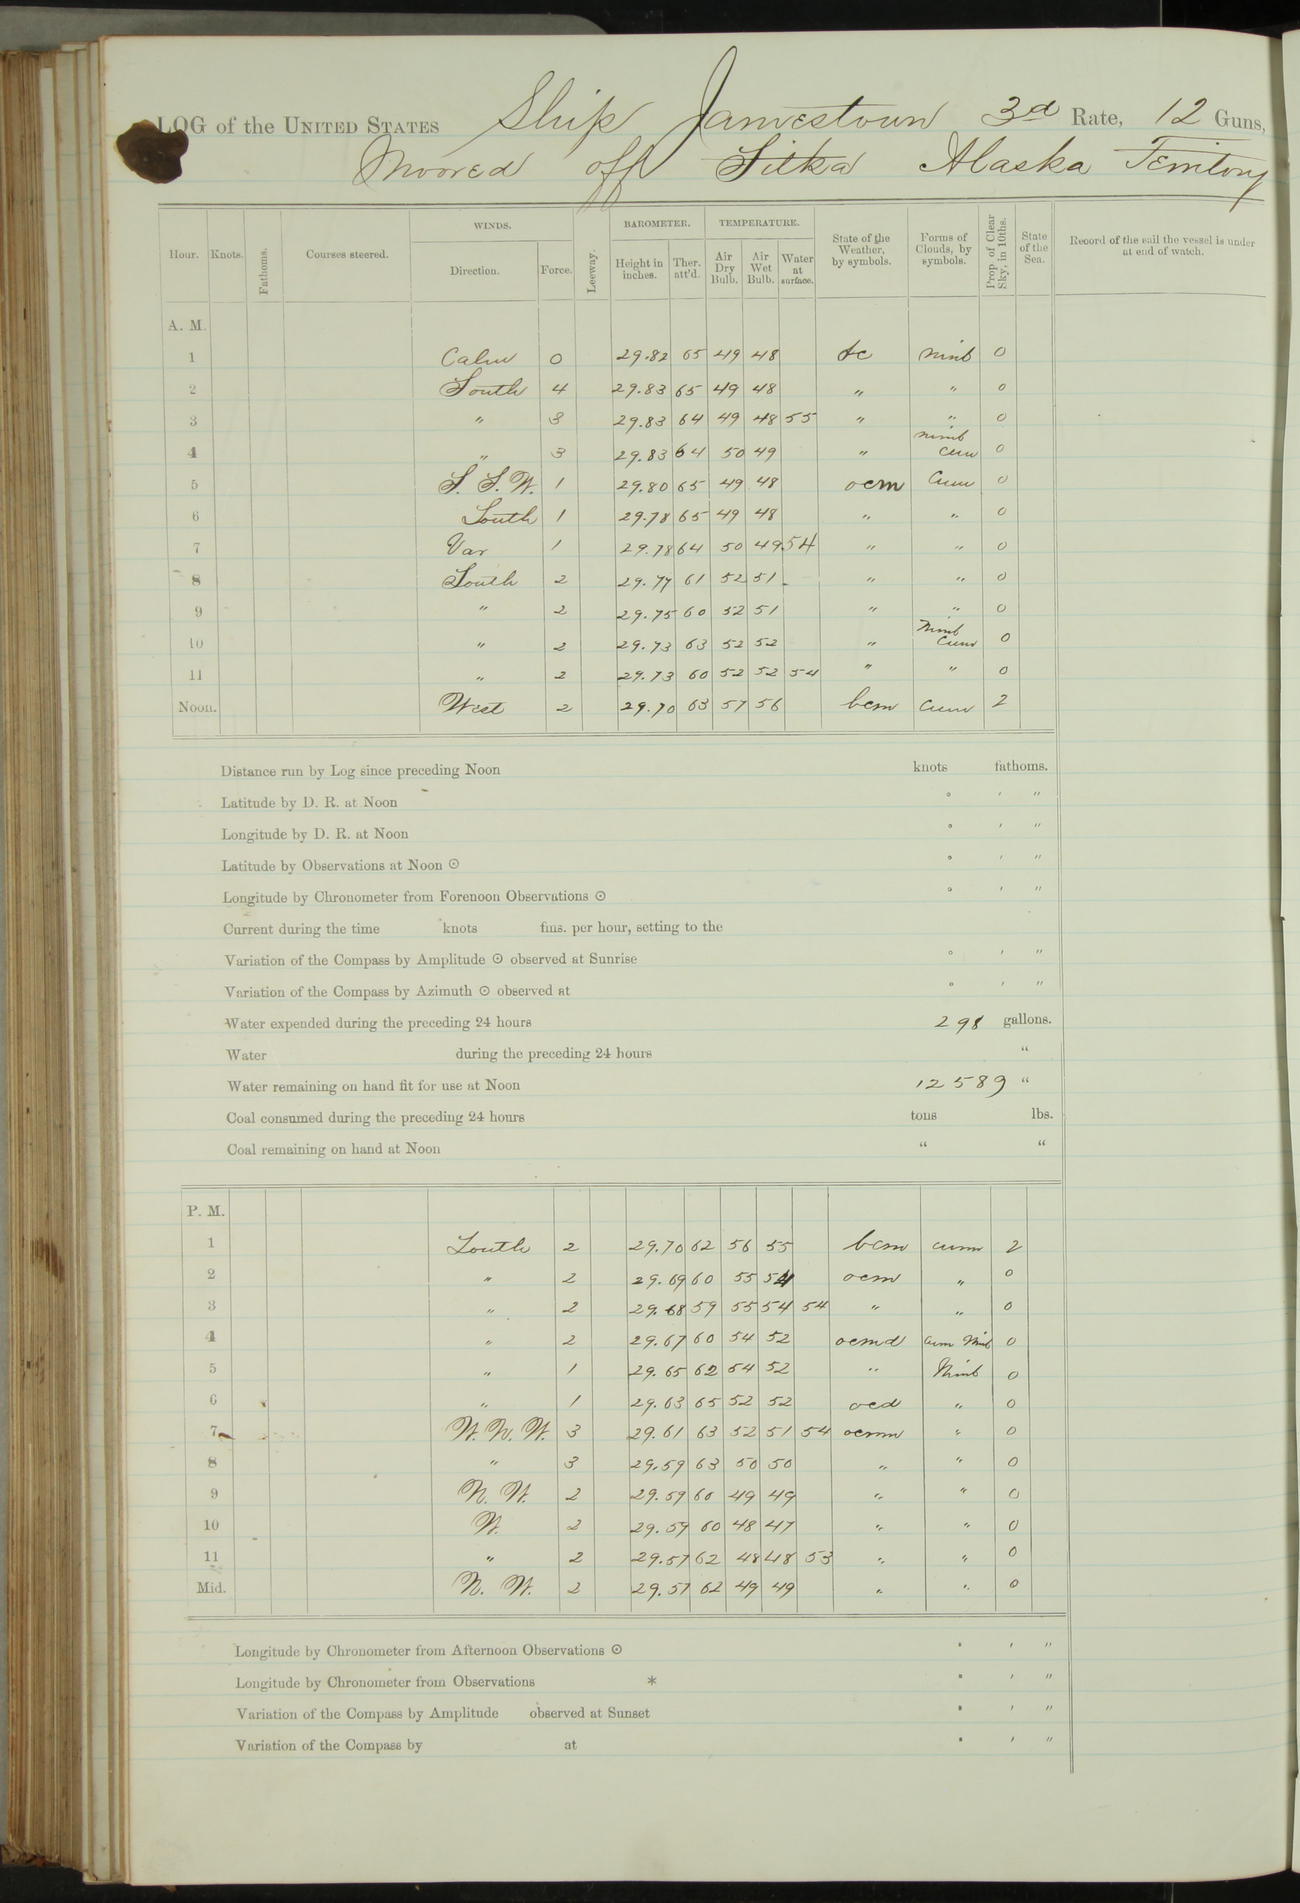 LOG of the UNITED STATES Ship Jamestown 3rd Rate, 12 Guns,
Moored off Sitka Alaska Territory
Hour. Knots. Fathoms. Courses steered. WINDS. Direction. Force. Leeway. BAROMETER. Height in inches. Ther. att'd. TEMPERATURE. Air Dry Bulb. Air Wet Bulb. Water at surface. State of the Weather, by symbols. Forms of Clouds, by symbols. Prop. of Clear Sky, in 10ths. State of the Sea. Record of the sail the vessel is under at end of watch.
A. M.
1 Calm 0 29.82 65 49 48 nimb 0
2 South 4 29.83 65 49 48 " " 0
3 " 3 29.83 64 49 48 55 " " 0
4 " 3 29.83 64 50 49 " nimb cum 0
5 S. S. W. 1 29.80 65 49 48 ocm Cum 0
6 South 1 29.78 65 49 48 " " 0
7 Var 1 29.78 64 50 49 54 " " 0
8 South 2 29.77 61 52 51 " " 0
9 " 2 29.75 60 52 51 " " 0
10 " 2 29.73 63 52 52 " Nimb Cum 0
11 " 2 29.73 60 52 52 54 " " 0
Noon. West 2 29.70 63 57 56 bcm Cum 2
Distance run by Log since preceding Noon knots fathoms.
Latitude by D. R. at Noon ° ' "
Longitude by D. R. at Noon ° ' "
Latitude by Observations at Noon ⊙ ° ' "
Longitude by Chronometer from Forenoon Observations ⊙ ° ' "
Current during the time knots fms. per hour, setting to the
Variation of the Compass by Amplitude ⊙ observed at Sunrise ° ' "
Variation of the Compass by Azimuth ⊙ observed at ° ' "
Water expended during the preceding 24 hours 298 gallons.
Water during the preceding 24 hours "
Water remaining on hand fit for use at Noon 12589 "
Coal consumed during the preceding 24 hours tons lbs.
Coal remaining on hand at Noon " "
P. M.
1 South 2 29.70 62 56 55 bcm cum 2
2 " 2 29.69 60 55 54 ocm " 0
3 " 2 29.68 59 55 54 54 " " 0
4 " 2 29.67 60 54 52 ocmd cum Nimb 0
5 " 1 29.65 62 54 52 " Nimb 0
6 " 1 29.63 65 52 52 ocd " 0
7 W. N. W. 3 29.61 63 52 51 54 ocmr " 0
8 " 3 29.59 63 50 50 " " 0
9 N. W. 2 29.59 60 49 49 " " 0
10 W. 2 29.59 60 48 47 " " 0
11 " 2 29.57 62 48 48 53 " " 0
Mid. N. W. 2 29.57 62 49 49 " " 0
Longitude by Chronometer from Afternoon Observations ⊙ ° ' "
Longitude by Chronometer from Observations * ° ' "
Variation of the Compass by Amplitude observed at Sunset ° ' "
Variation of the Compass by at ° ' "